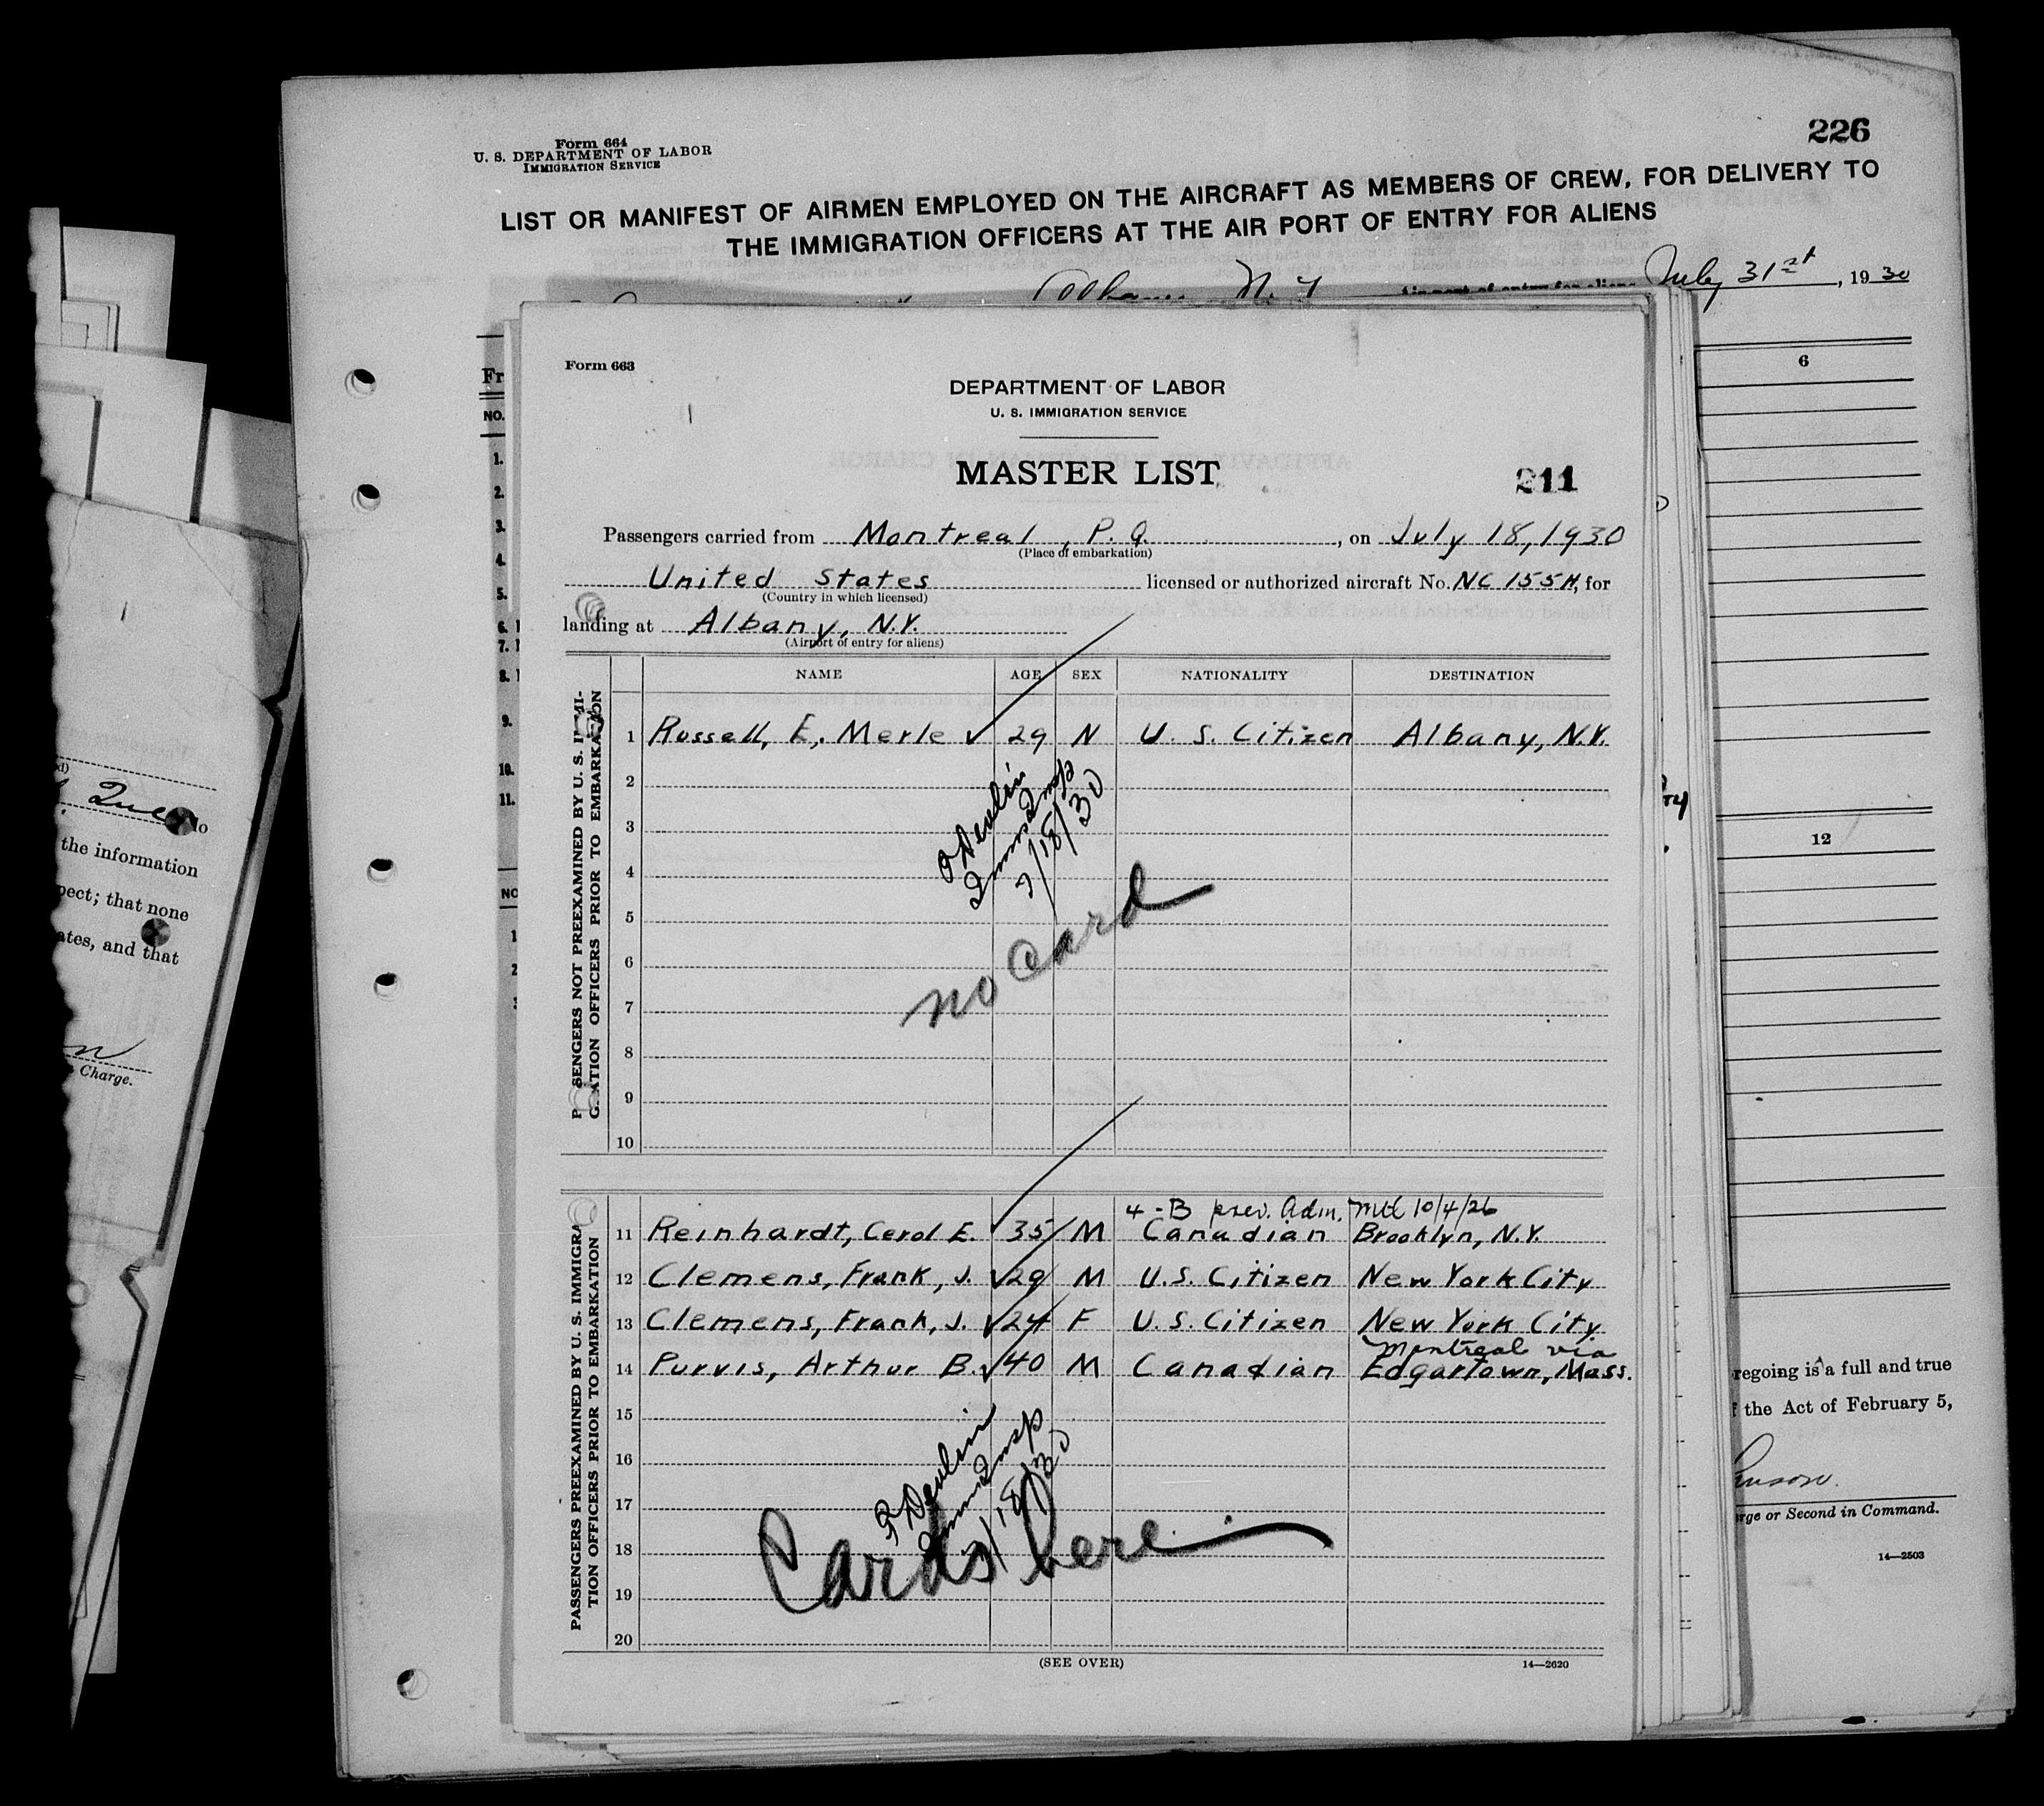 Form 664
U. S. DEPARTMENT OF LABOR
IMMIGRATION SERVICE
226
LIST OR MANIFEST OF AIRMEN EMPLOYED ON THE AIRCRAFT AS MEMBERS OF CREW, FOR DELIVERY TO
THE IMMIGRATION OFFICERS AT THE AIR PORT OF ENTRY FOR ALIENS
N. Y. July 31st, 1930
Form 663
DEPARTMENT OF LABOR
U. S. IMMIGRATION SERVICE
MASTER LIST
211
Passengers carried from Montreal, P.Q. , on July 18, 1930
(Place of embarkation)
United States licensed or authorized aircraft No. NC 155H, for
(Country in which licensed)
landing at Albany, N.Y.
(Airport of entry for aliens)
NAME AGE SEX NATIONALITY DESTINATION
PASSENGERS NOT PREEXAMINED BY U. S. IMMI-
GRATION OFFICERS PRIOR TO EMBARKATION
1 Russell, E, Merle 29 M U. S. Citizen Albany, N.Y.
2
3
4
5
6
7
8
9
10
Devlin
Imm Insp
7/18/30
no card
PASSENGERS PREEXAMINED BY U. S. IMMIGRA
TION OFFICERS PRIOR TO EMBARKATION
4-B prev. Adm. Mtl 10/4/26
11 Reinhardt, Cerol E. 35 M Canadian Brooklyn, N.Y.
12 Clemens, Frank, J. 29 M U.S. Citizen New York City
13 Clemens, Frank, J. 24 F U.S. Citizen New York City
Montreal via
14 Purvis, Arthur B. 40 M Canadian Edgartown, Mass.
15
16
17
18
19
20
Devlin
Imm Insp
7/18/30
Cards here
(SEE OVER)
14—2620
Fr
NO.
1.
2.
3.
4.
5.
6.
7.
8.
9.
10.
11.
NO
1
2
6
12
regoing is a full and true
the Act of February 5,
rge or Second in Command.
14—2503
Que
to
the information
pect; that none
ates, and that
Charge.